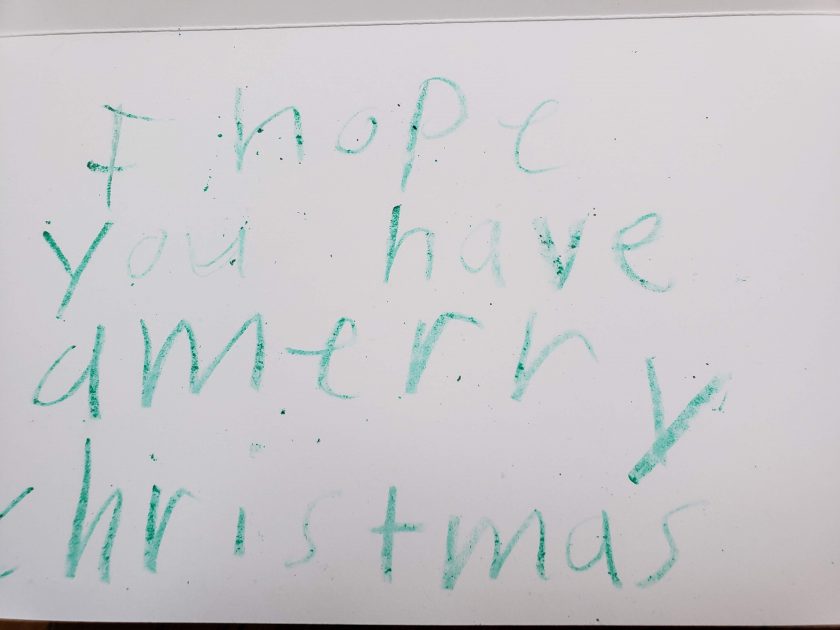 I hope
you have
a merry
christmas